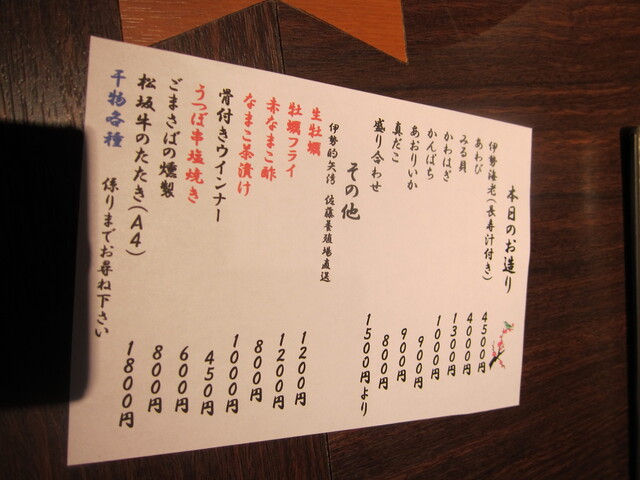 本日のお造り
伊勢海老(長寿汁付き) 4500円
あわび 4000円
みる貝 1300円
かわはぎ 1000円
かんぱち 900円
あおりいか 900円
真だこ 800円
盛り合わせ 1500円より
その他
伊勢的矢湾 佐藤養殖場直送
生牡蠣 1200円
牡蠣フライ 1200円
赤なまこ酢 800円
なまこ茶漬け 1000円
骨付きウインナー 450円
うつぼ串塩焼き 600円
ごまさばの燻製 800円
松坂牛のたたき(A4) 1800円
干物各種 係りまでお尋ね下さい